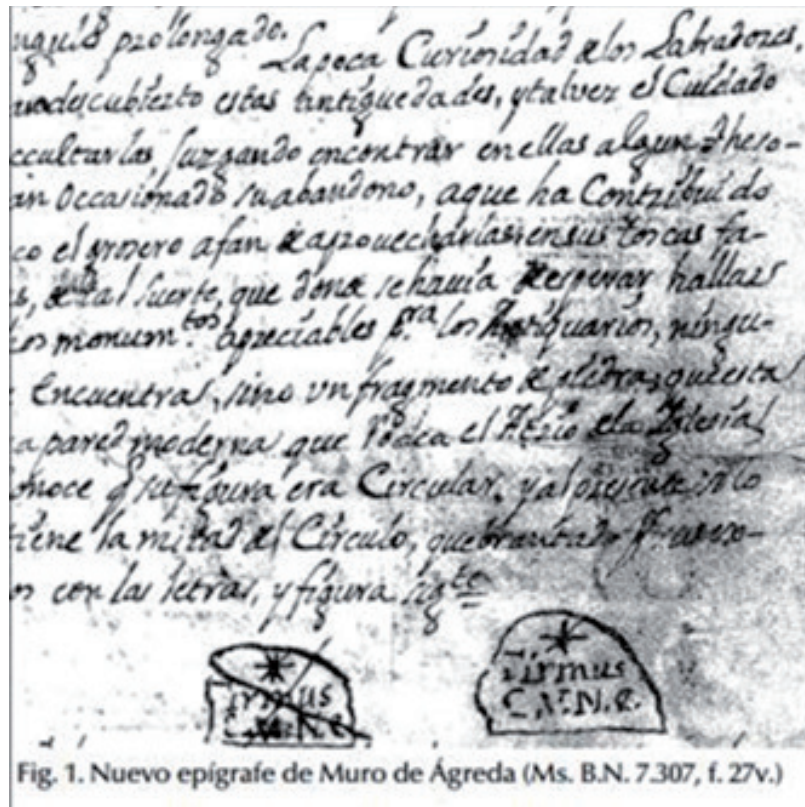 angulo prolongado. La poca Curiosidad de los Labradores,
an descubierto estas antiguedades, y talvez el Cuidado
occultarlas Juzgando encontrar en ellas algun theso-
an Occasionado su abandono, aque ha Contribuido
co el grosero afan de aprovecharlas en sus toscas fa-
s, de tal suerte, que donde se havia de esperar hallar
los monum.tos apreciables p.ra los Antiquarios, ningu-
encuentra, sino un fragmento de piedra, que esta
a pared moderna que rodea el Atrio de la Iglesia
onoce q su figura era Circular, y al presente solo
tiene la mitad del Circulo, quebrantado
con las letras, y figura sig.te
irmus
irmus
C. V. N. C.
Fig. 1. Nuevo epígrafe de Muro de Ágreda (Ms. B.N. 7.307, f. 27v.)